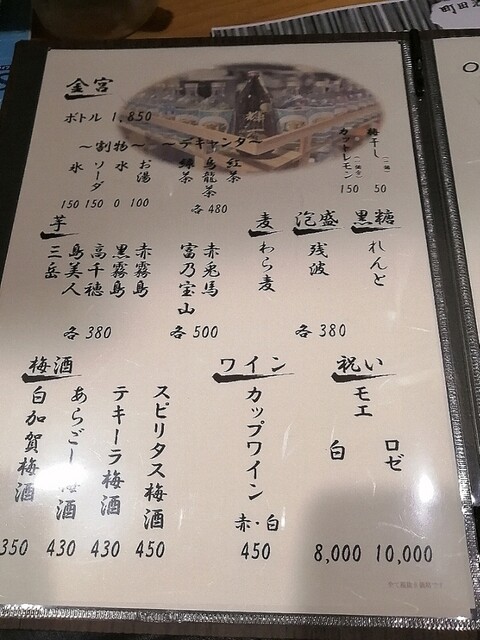 金宮
ボトル 1,850
〜割物〜
氷 150
ソーダ 150
水 0
お湯 100
〜デキャンタ〜
緑茶
烏龍茶
紅茶
各 480
カットレモン
150
梅干し
50
芋
三岳
島美人
高千穂
黒霧島
赤霧島
各 380
富乃宝山
赤兎馬
各 500
麦
わら麦
泡盛
残波
黒糖
れんと
各 380
梅酒
白加賀梅酒
350
あらごし梅酒
430
テキーラ梅酒
430
スピリタス梅酒
450
ワイン
カップワイン
赤・白
450
祝い
モエ
白
8,000
ロゼ
10,000